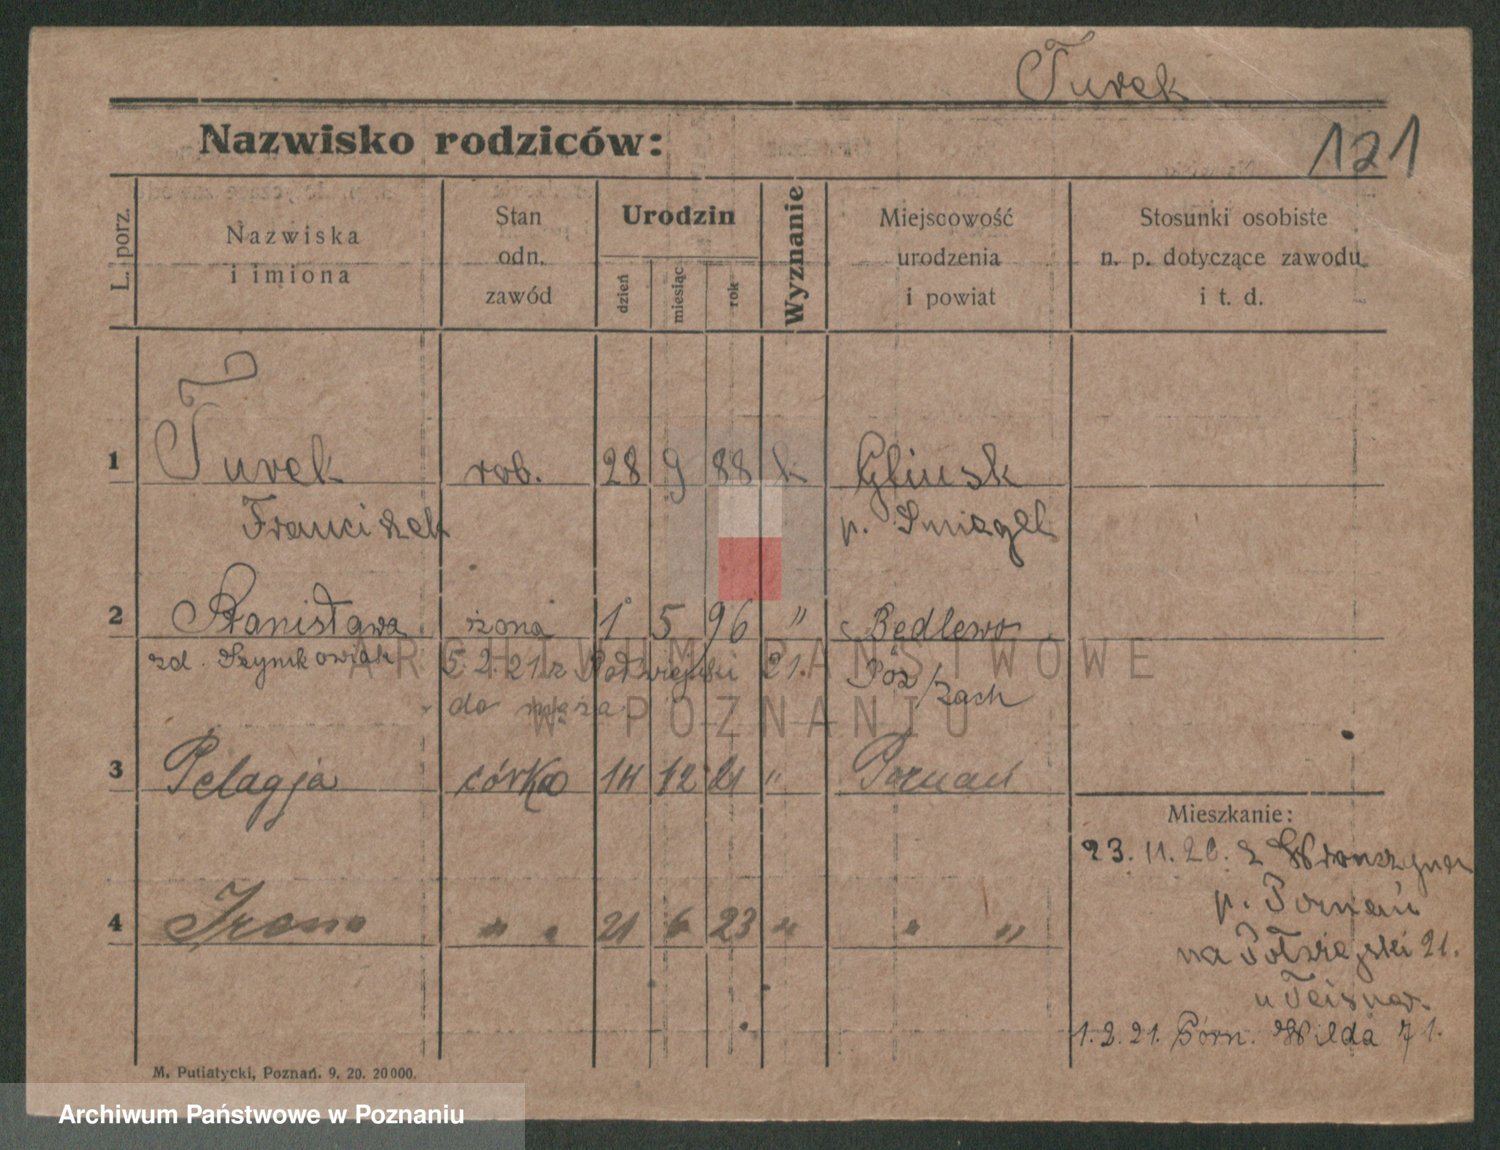 Turek
Nazwisko rodziców:
121
L. porz.
Nazwiska
i imiona
Stan
odn.
zawód
Urodzin
dzień
miesiąc
rok
Wyznanie
Miejscowość
urodzenia
i powiat
Stosunki osobiste
n. p. dotyczące zawodu
i t. d.
1 Turek rob. 28 9 88 k Glinsk
Franciszek p. Śmigel
2 Stanisława żona 1 5 96 " Będlewo
zd. Szymkowiak 5. 2. 21. z Półwiejski 21. Poz/zach
do męża
3 Pelagja córka 14 12 21 " Poznań
Mieszkanie:
23. 11. 20. z
p. Poznań
4 Irena " " 21 6 23 " " "
na Półwiejski 21.
u
1. 2. 21. Górn. Wilda 71.
M. Putiatycki, Poznań. 9. 20. 20000.
ARCHIWUM PAŃSTWOWE
W POZNANIU
Archiwum Państwowe w Poznaniu